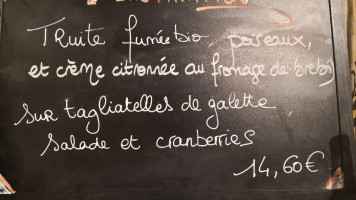 Truite fumée bio, poireaux,
et crème citronnée au fromage de brebis
sur tagliatelles de galette,
salade et cranberries
14,60€